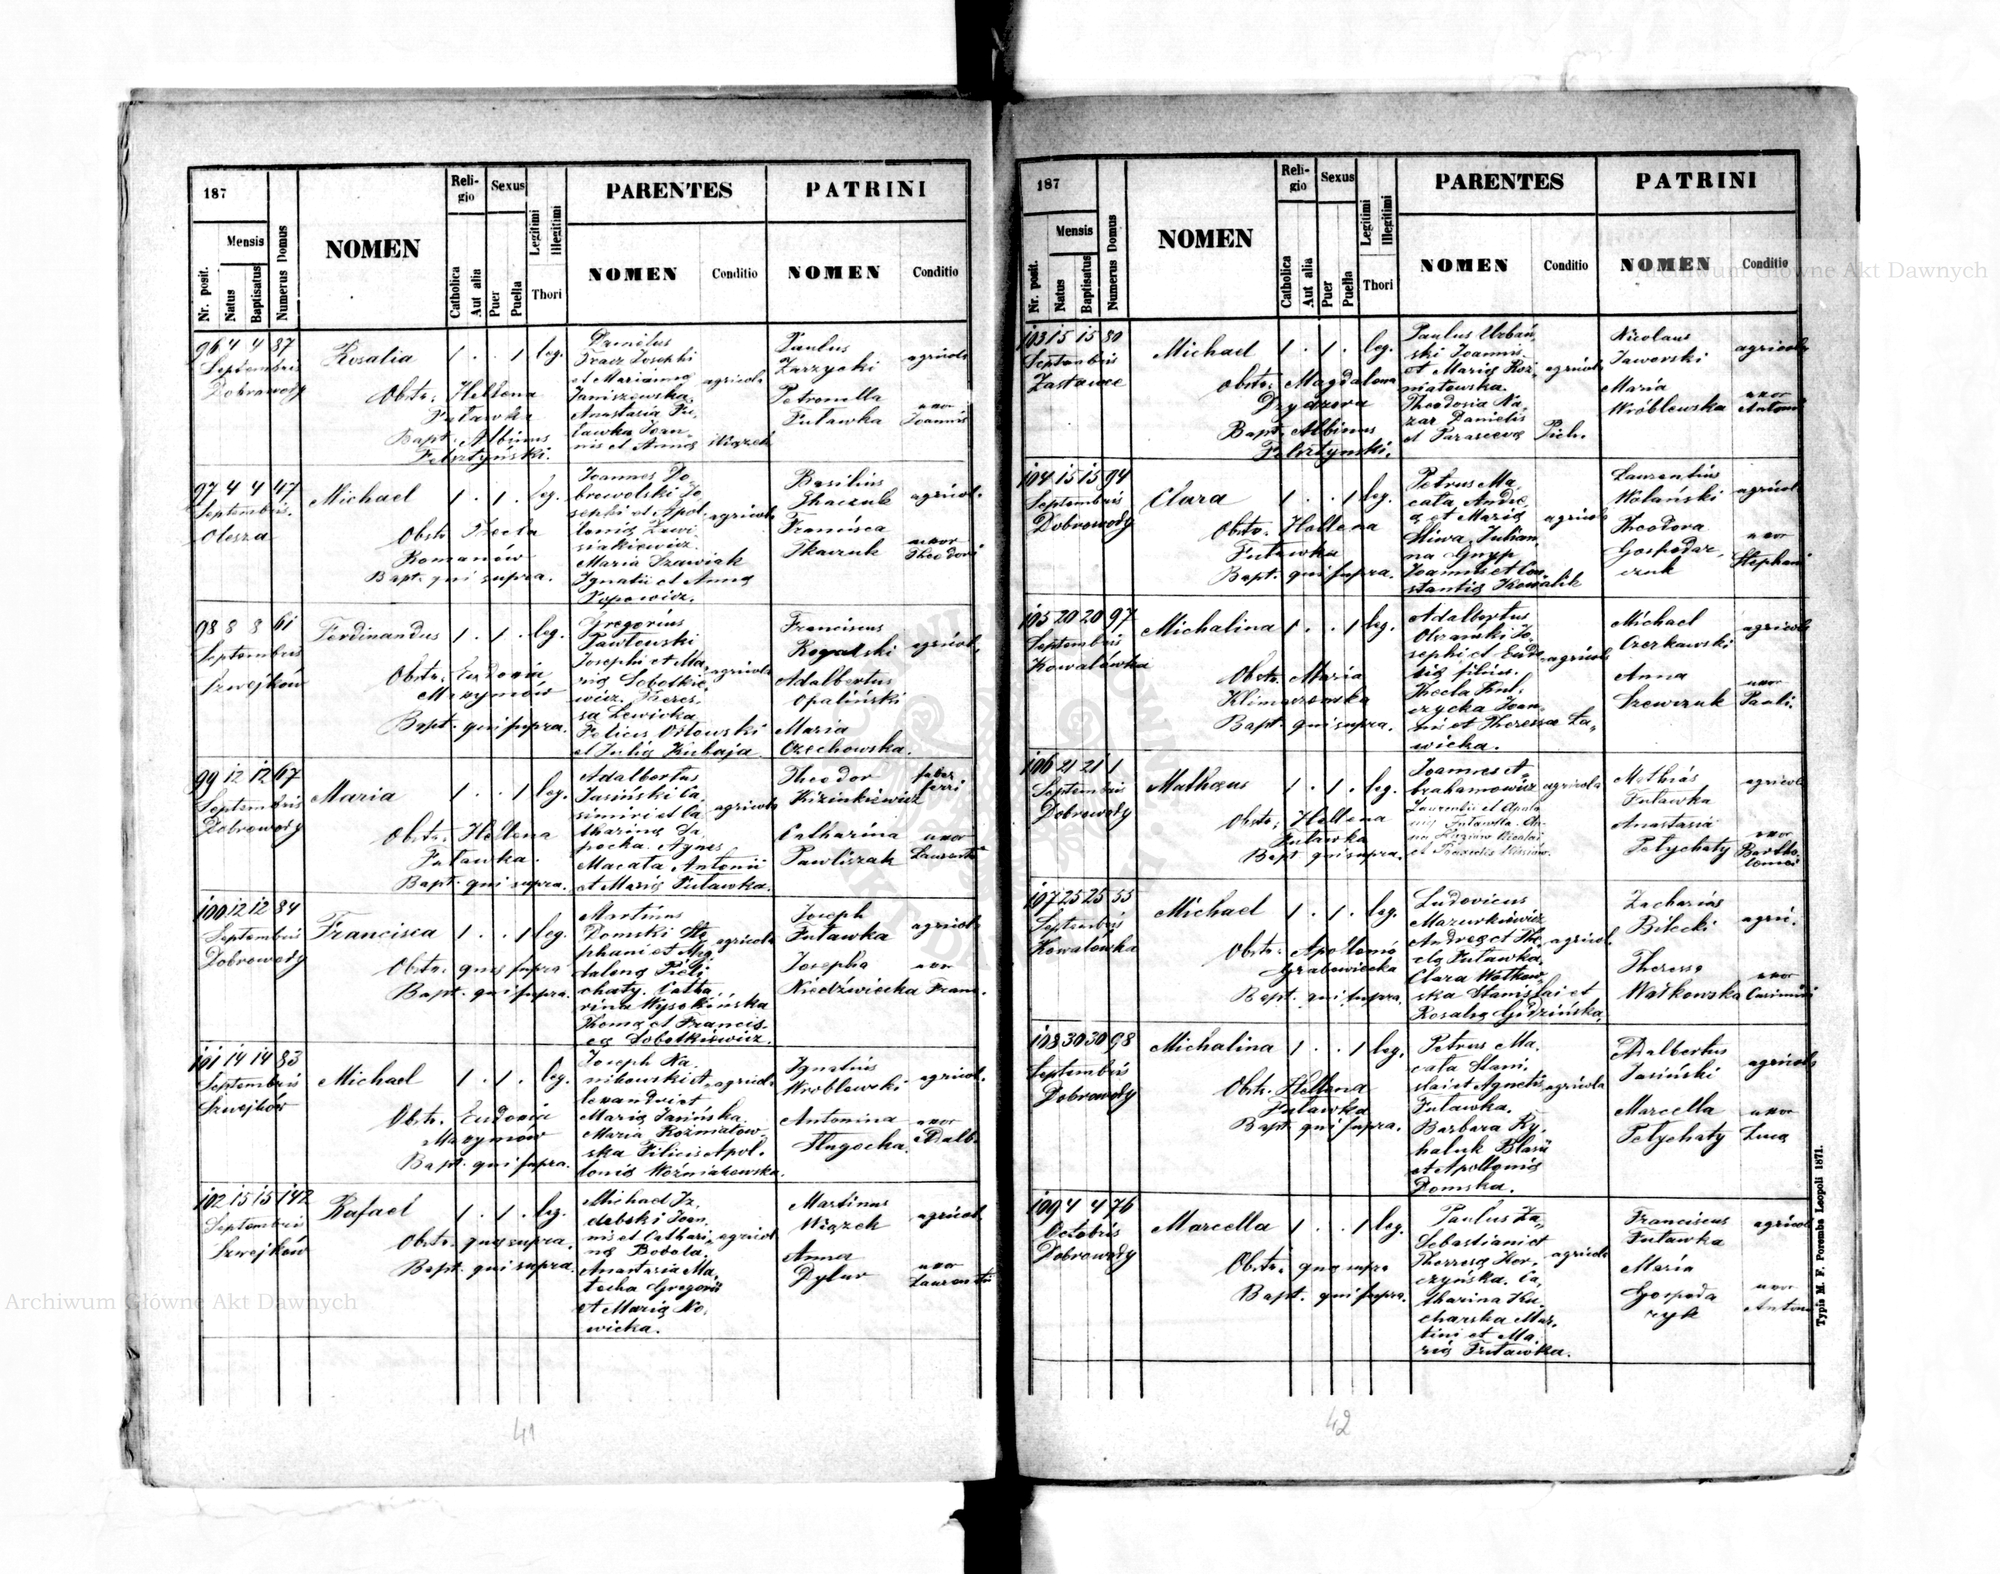 187
Mensis
Nr. posit.
Natus
Baptisatus
Numerus Domus
NOMEN
Religio
Catholica
Aut alia
Sexus
Puer
Puella
Legitimi
Illegitimi
Thori
PARENTES
NOMEN
Conditio
PATRINI
NOMEN
Conditio
96 4 4 87
Septembris
Dobrowody
Rosalia
1 . . 1 leg.
Obstr. Hellena
Futawka
Bapt. Albinus
Felsztyński.
Josephi
et Marianna
Janiszewska.
Anastasia Fu,
tawka Joan,
nis et Anna Wiązek
agricola
Paulus
Zarzycki
Petronella
Futawka
agricola
uxor
Joannis
97 4 4 47
Septembris.
Olesza
Michael
1 . 1 . leg.
Obstr. Thecla
Romanów
Bapt. qui supra.
Joannes Do,
browolski Jo,
sephi et Apol,
lonia
Maria Szawiak
Ignatii et Anna
Popowicz.
agricola
Basilius
Tkaczuk
Francisca
Tkaczuk
agricol.
uxor
Theodori
98 8 8 61
Septembris
Szwejków
Ferdinandus
1 . 1 . leg.
Obstr. Eudoxia
Maxymów
Bapt. qui supra.
Gregorius
Pawłowski
Josephi et Ma,
ria Sobotkie,
wicz. There,
sa Lewicka
Felicis Orłowski
et Julia Kubaja.
agricola
Franciscus
Rogalski
Adalbertus
Opaliński
Maria
Ozechowska.
agricol.
99 12 12 67
Septembris
Dobrowody
Maria
1 . . 1 leg.
Obstr. Hellena
Futawka.
Bapt. qui supra.
Adalbertus
Jasiński Ca,
simiri et Ca,
tharina
Agnes
Macata Antonii
et Maria Futawka.
agricola
Theodor
Kizinkiewicz
Catharina
Pawliszak
faber
ferri
uxor
Laurentii
100 12 12 84
Septembris
Dobrowody
Francisca
1 . . 1 leg.
Obstr. qua supra
Bapt. qui supra.
Martinus
Domski Ste,
phani et Mag
dalena Pieli
chaty. Catha,
rina Wysokińska
Thoma et Francis,
ca Sobotkiewicz.
agricola
Joseph
Futawka
Josepha
Niedźwiecka
agricol.
uxor
Franc.
101 14 14 83
Septembris
Szwejków
Michael
1 . 1 . leg.
Obstr. Eudoxia
Maxymów
Bapt. qui supra.
Joseph Na,
nibowski A,
lexandri et
Maria Jasińska.
Maria Koźmiatow,
ska Filicis Apol,
lonia Woźniakowska.
agricola
Ignatius
Wroblewski
Antonina
Hugocka
agricol.
uxor
Adalb.
102 15 15 142
Septembris
Szwejków
Rafael
1 . 1 . leg.
Obstr. qua supra.
Bapt. qui supra.
Michael Iz,
debski Joan,
nis et Cathari,
na Bobola.
Anastasia Ma,
tocha Gregorii
et Maria No,
wicka.
agricol.
Martinus
Wiązek
Anna
Dylur
agricol.
uxor
Laurentii
41
187
Mensis
Nr. posit.
Natus
Baptisatus
Numerus Domus
NOMEN
Religio
Catholica
Aut alia
Sexus
Puer
Puella
Legitimi
Illegitimi
Thori
PARENTES
NOMEN
Conditio
PATRINI
NOMEN
Conditio
103 15 15 80
Septembris
Zastawce
Michael
1 . 1 . leg.
Obstr. Magdalena
Dzydzora
Bapt. Albinus
Felsztynski.
Paulus Urbań,
ski Joannis
et Maria Koz,
niatowska.
Theodosia Na,
zar Danielis
et Parasceva Pich.
agricola
Nicolaus
Jaworski
Maria
Wróblewska
agricola
uxor
Antonii
104 15 15 94
Septembris
Dobrowody
Clara
1 . . 1 leg.
Obstr. Hellena
Futawka
Bapt. qui supra.
Petrus Ma,
cata Andre,
a et Maria
Sliwa. Julian,
na Gnyp
Joannis et Con,
stantia Kowalik
agricola
Laurentius
Wolański
Theodora
Gospodar,
czuk
agricol.
uxor
Stephani
105 20 20 97
Septembris
Kowalówka
Michalina
1 . . 1 leg.
Obstr. Maria
Klimaszewska
Bapt. qui supra.
Adalbertus
Olszanski Jo,
sephi et Eudo
xia filius.
Thecla Kul,
czycka Joan,
nis et Theressa Sa,
wicka.
agricola
Michael
Czerkawski
Anna
Szewczuk
agricola
uxor
Pauli.
106 21 21 1
Septembris
Dobrowody
Mathaeus
1 . 1 . leg.
Obstr. Hellena
Futawka
Bapt. qui supra.
Joannes A,
brahamowicz
Laurentii et Apolo
nia Futawka.
agricola
Mathias
Futawka
Anastasia
Petychaty
agricola
uxor
Bartho,
lomei
107 25 25 55
Septembris
Kowalówka
Michael
1 . 1 . leg.
Obstr. Apollonia
Grabowiecka
Bapt. qui supra.
Ludovicus
Mazurkiewicz
Andrea et The,
cla Futawka.
Clara Watkow,
ska Stanislai et
Rosalia Gidzińska.
agricol.
Zacharias
Bilecki
Theressa
Watkowska
agri.
uxor
Casimiri
108 30 30 98
Septembris
Dobrowody
Michalina
1 . . 1 leg.
Obstr. Hellena
Futawka
Bapt. qui supra.
Petrus Ma,
cata Stani,
slai et Agnetis
Futawka.
Barbara Ry,
haluk Blasii
et Apollonia
Domska.
agricola
Adalbertus
Jasiński
Marcella
Petychaty
agricola
uxor
Luca
109 4 4 76
Octobris
Dobrowody
Marcella
1 . . 1 leg.
Obstr. qua supra
Bapt. qui supra.
Paulus Za,
Sebastiani et
Theressa Kor,
czyńska. Ca,
tharina Ku,
charska Mar,
tini et Ma,
ria Futawka.
agricola
Franciscus
Futawka
Maria
Gospoda
ryk
agricol.
uxor
Antonii
Typis M. F. Poremba Leopoli 1871.
42
Archiwum Główne Akt Dawnych
Archiwum Główne Akt Dawnych